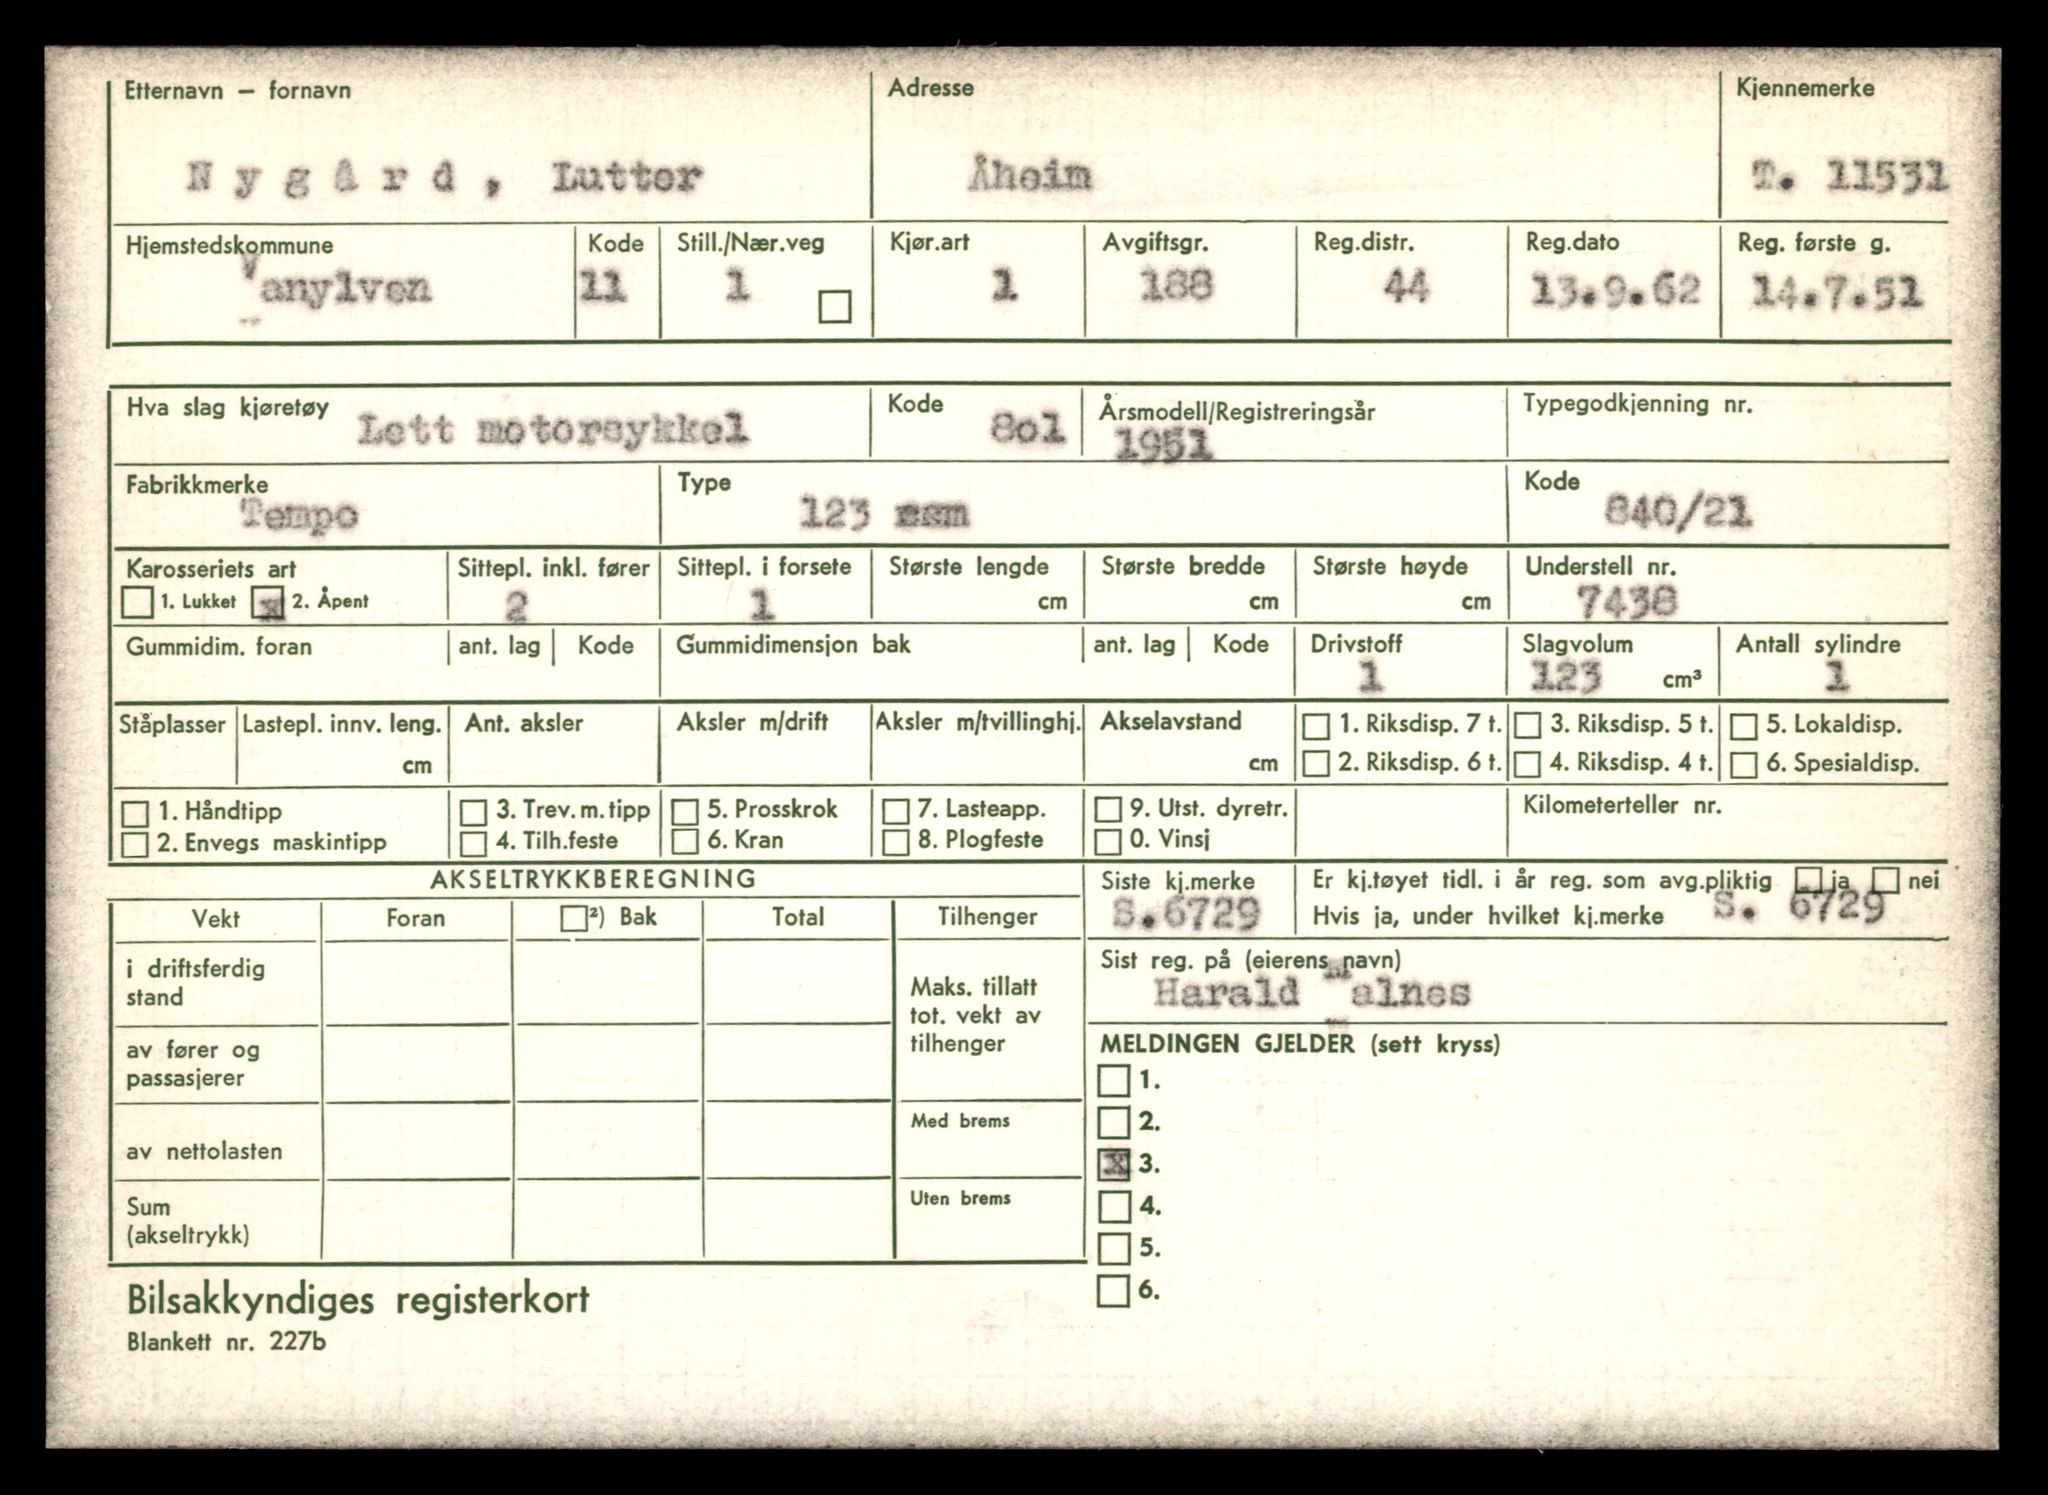 Etternavn – fornavn Adresse Kjennemerke
Nygård, Lutter Åheim T. 11531
Hjemstedskommune Kode Still./Nær.veg Kjør.art Avgiftsgr. Reg.distr. Reg.dato Reg. første g.
Vanylven 11 1 1 188 44 13.9.62 14.7.51
Hva slag kjøretøy Lett motorsykkel Kode 8o1 Årsmodell/Registreringsår Typegodkjenning nr.
1951
Fabrikkmerke Type Kode
Tempo 123 840/21
Karosseriets art Sittepl. inkl. fører Sittepl. i forsete Største lengde Største bredde Største høyde Understell nr.
1. Lukket x 2. Åpent 2 1 cm cm cm 7438
Gummidim. foran ant. lag Kode Gummidimensjon bak ant. lag Kode Drivstoff Slagvolum Antall sylindre
1 123 cm³ 1
Ståplasser Lastepl. innv. leng. Ant. aksler Aksler m/drift Aksler m/tvillinghj. Akselavstand 1. Riksdisp. 7 t. 3. Riksdisp. 5 t. 5. Lokaldisp.
cm cm 2. Riksdisp. 6 t. 4. Riksdisp. 4 t. 6. Spesialdisp.
1. Håndtipp 3. Trev. m. tipp 5. Prosskrok 7. Lasteapp. 9. Utst. dyretr. Kilometerteller nr.
2. Envegs maskintipp 4. Tilh.feste 6. Kran 8. Plogfeste 0. Vinsj
AKSELTRYKKBEREGNING Siste kj.merke Er kj.tøyet tidl. i år reg. som avg.pliktig ja nei
Vekt Foran ²) Bak Total Tilhenger S.6729 Hvis ja, under hvilket kj.merke S. 6729
i driftsferdig stand
av fører og passasjerer
av nettolasten
Sum (akseltrykk)
Maks. tillatt tot. vekt av tilhenger
Med brems
Uten brems
Sist reg. på (eierens navn)
Harald Malnes
MELDINGEN GJELDER (sett kryss)
1.
2.
x 3.
4.
5.
6.
Bilsakkyndiges registerkort
Blankett nr. 227b